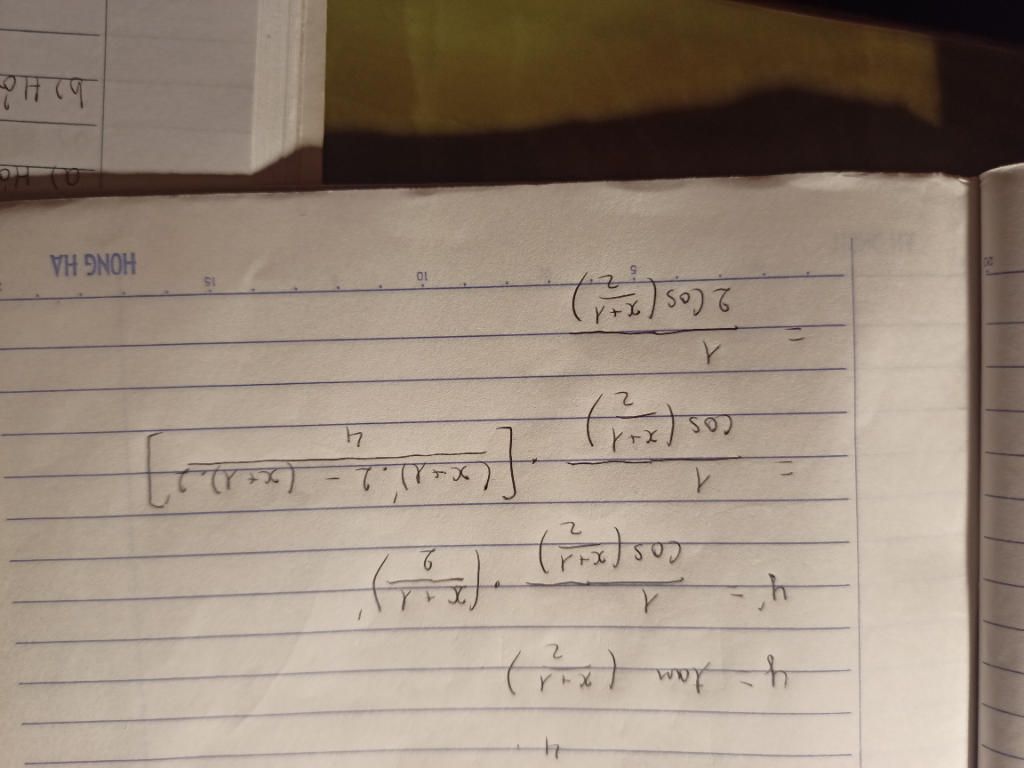 4
y = tan (x+1/2)
y' = 1/cos(x+1/2) . (x+1/2)'
= 1/cos(x+1/2) . [(x+1)'.2 - (x+1).2'/4]
= 1/2cos(x+1/2)
5 10 15
HONG HA
20
a) Hà
b) Hà